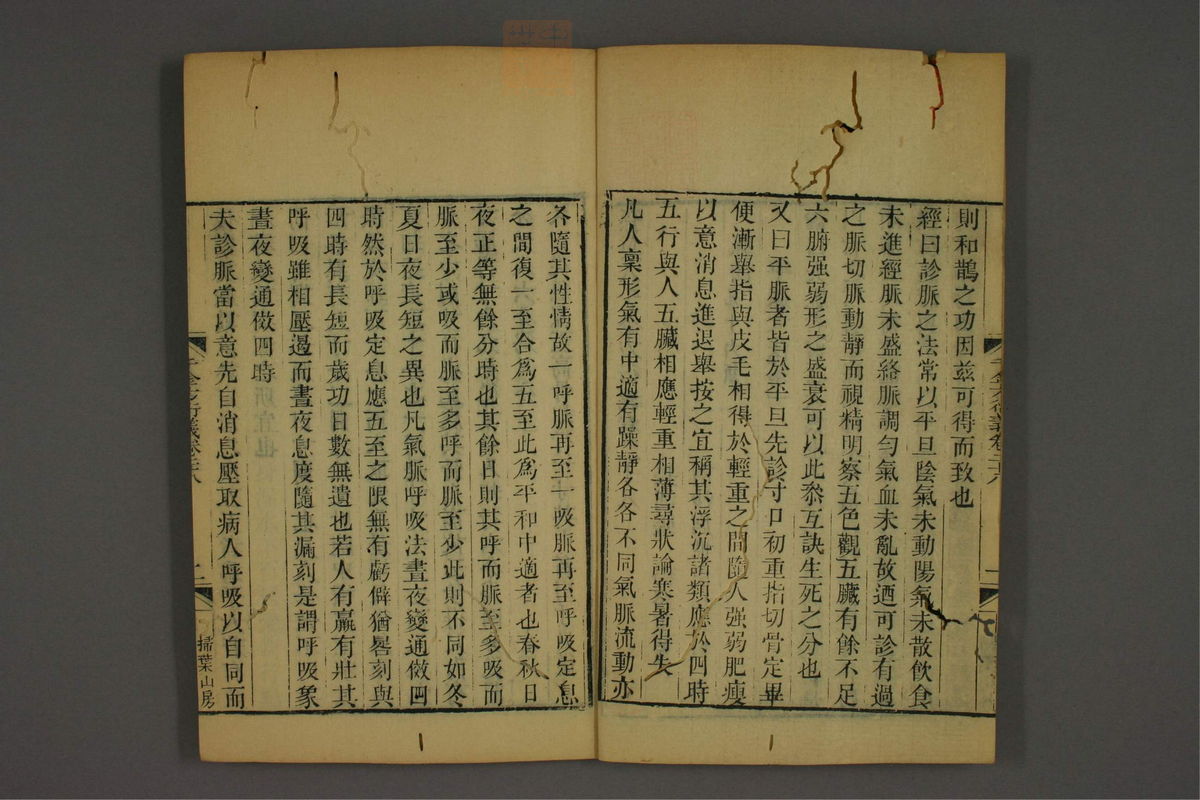 則和鵲之功因茲可得而致也
經曰診脈之法常以平旦陰氣未動陽氣未散飲食
未進經脈未盛絡脈調勻氣血未亂故迺可診有過
之脈切脈動靜而視精明察五色觀五臟有餘不足
六腑强弱形之盛衰可以此叅互訣生死之分也
又曰平脈者皆於平旦先診寸口初重指切骨定畢
便漸舉指與皮毛相得於輕重之間隨人强弱肥瘦
以意消息進退舉按之宜稱其浮沉諸類應於四時
五行與人五臟相應輕重相薄尋狀論寒暑得失
凡人稟形氣有中適有躁靜各各不同氣脈流動亦
各隨其性情故一呼脈再至一吸脈再至呼吸定息
之間復一至合爲五至此爲平和中適者也春秋日
夜正等無餘分時也其餘日則其呼而脈至多吸而
脈至少或吸而脈至多呼而脈至少此則不同如冬
夏日夜長短之異也凡氣脈呼吸法晝夜變通倣四
時然於呼吸定息應五至之限無有虧僻猶晷刻與
四時有長短而歲功日數無遺也若人有羸有壯其
呼吸雖相壓遏而晝夜息度隨其漏刻是謂呼吸象
晝夜變通倣四時
夫診脈當以意先自消息壓取病人呼吸以自同而
千金方衍義卷二十八
二
掃葉山房